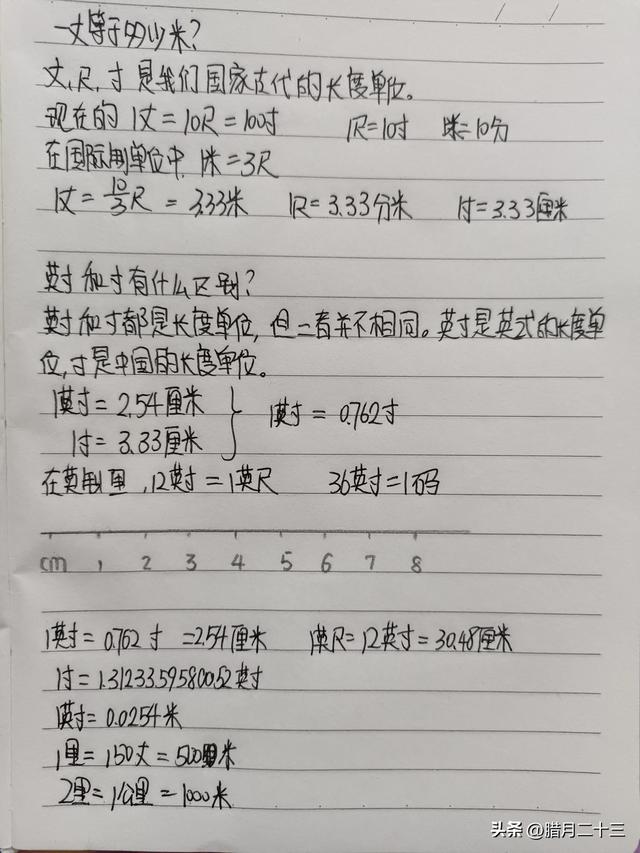 一丈等于多少米?
丈,尺,寸是我们国家古代的长度单位。
现在的 1丈=10尺=100寸 1尺=10寸 1米=10分
在国际制单位中,1米=3尺
1丈=10/3尺=3.33米 1尺=3.33分米 1寸=3.33厘米
英寸和寸有什么区别?
英寸和寸都是长度单位,但二者并不相同。英寸是英式的长度单
位,寸是中国的长度单位。
1英寸=2.54厘米
1寸=3.33厘米
1英寸=0.762寸
在英制里,12英寸=1英尺 36英寸=1码
cm 1 2 3 4 5 6 7 8
1英寸=0.762寸=2.54厘米 1英尺=12英寸=30.48厘米
1寸=1.3123359580052英寸
1英寸=0.0254米
1里=150丈=500米
2里=1公里=1000米
头条 @腊月二十三